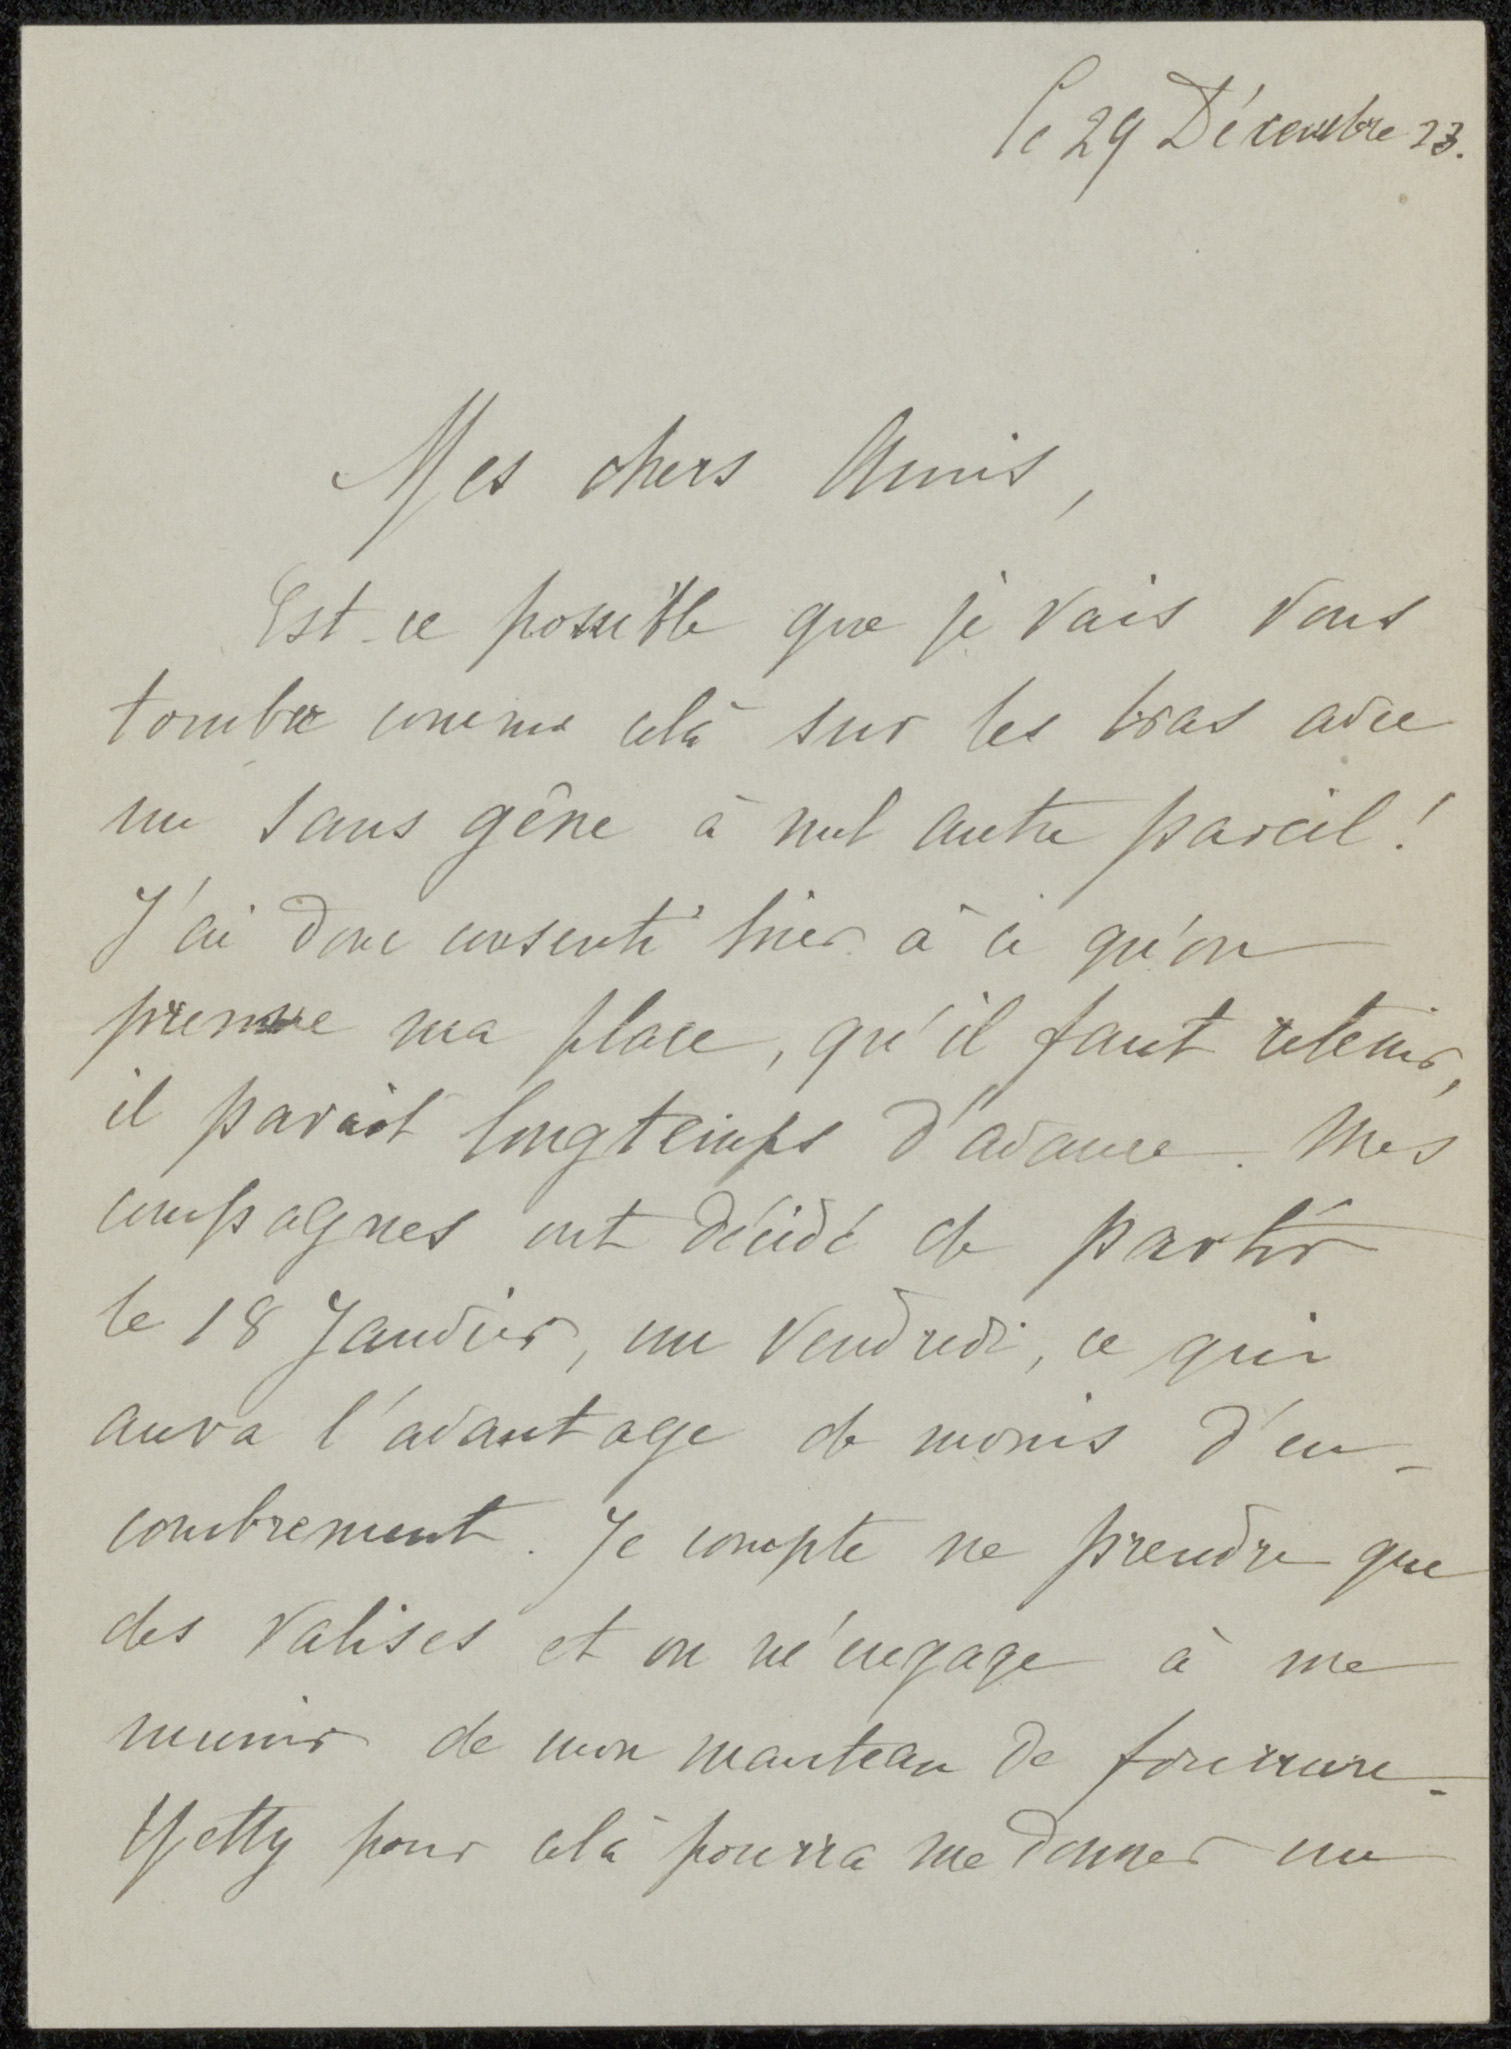 le 29 Décembre 23.
Mes chers Amis,
Est-ce possible que je vais vous
tomber comme celà sur les bras avec
un sans gêne à nul autre pareil !
J'ai donc consenti hier à ce qu'on
prenne ma place, qu'il faut retenir,
il parait longtemps d'avance. Mes
compagnes ont décidé de partir
le 18 Janvier, un Vendredi, ce qui
aura l'avantage de moins d'en-
combrement. Je compte ne prendre que
des valises et on m'engage à me
munir de mon manteau de fourrure.
Yetty pour celà pourra me donner un